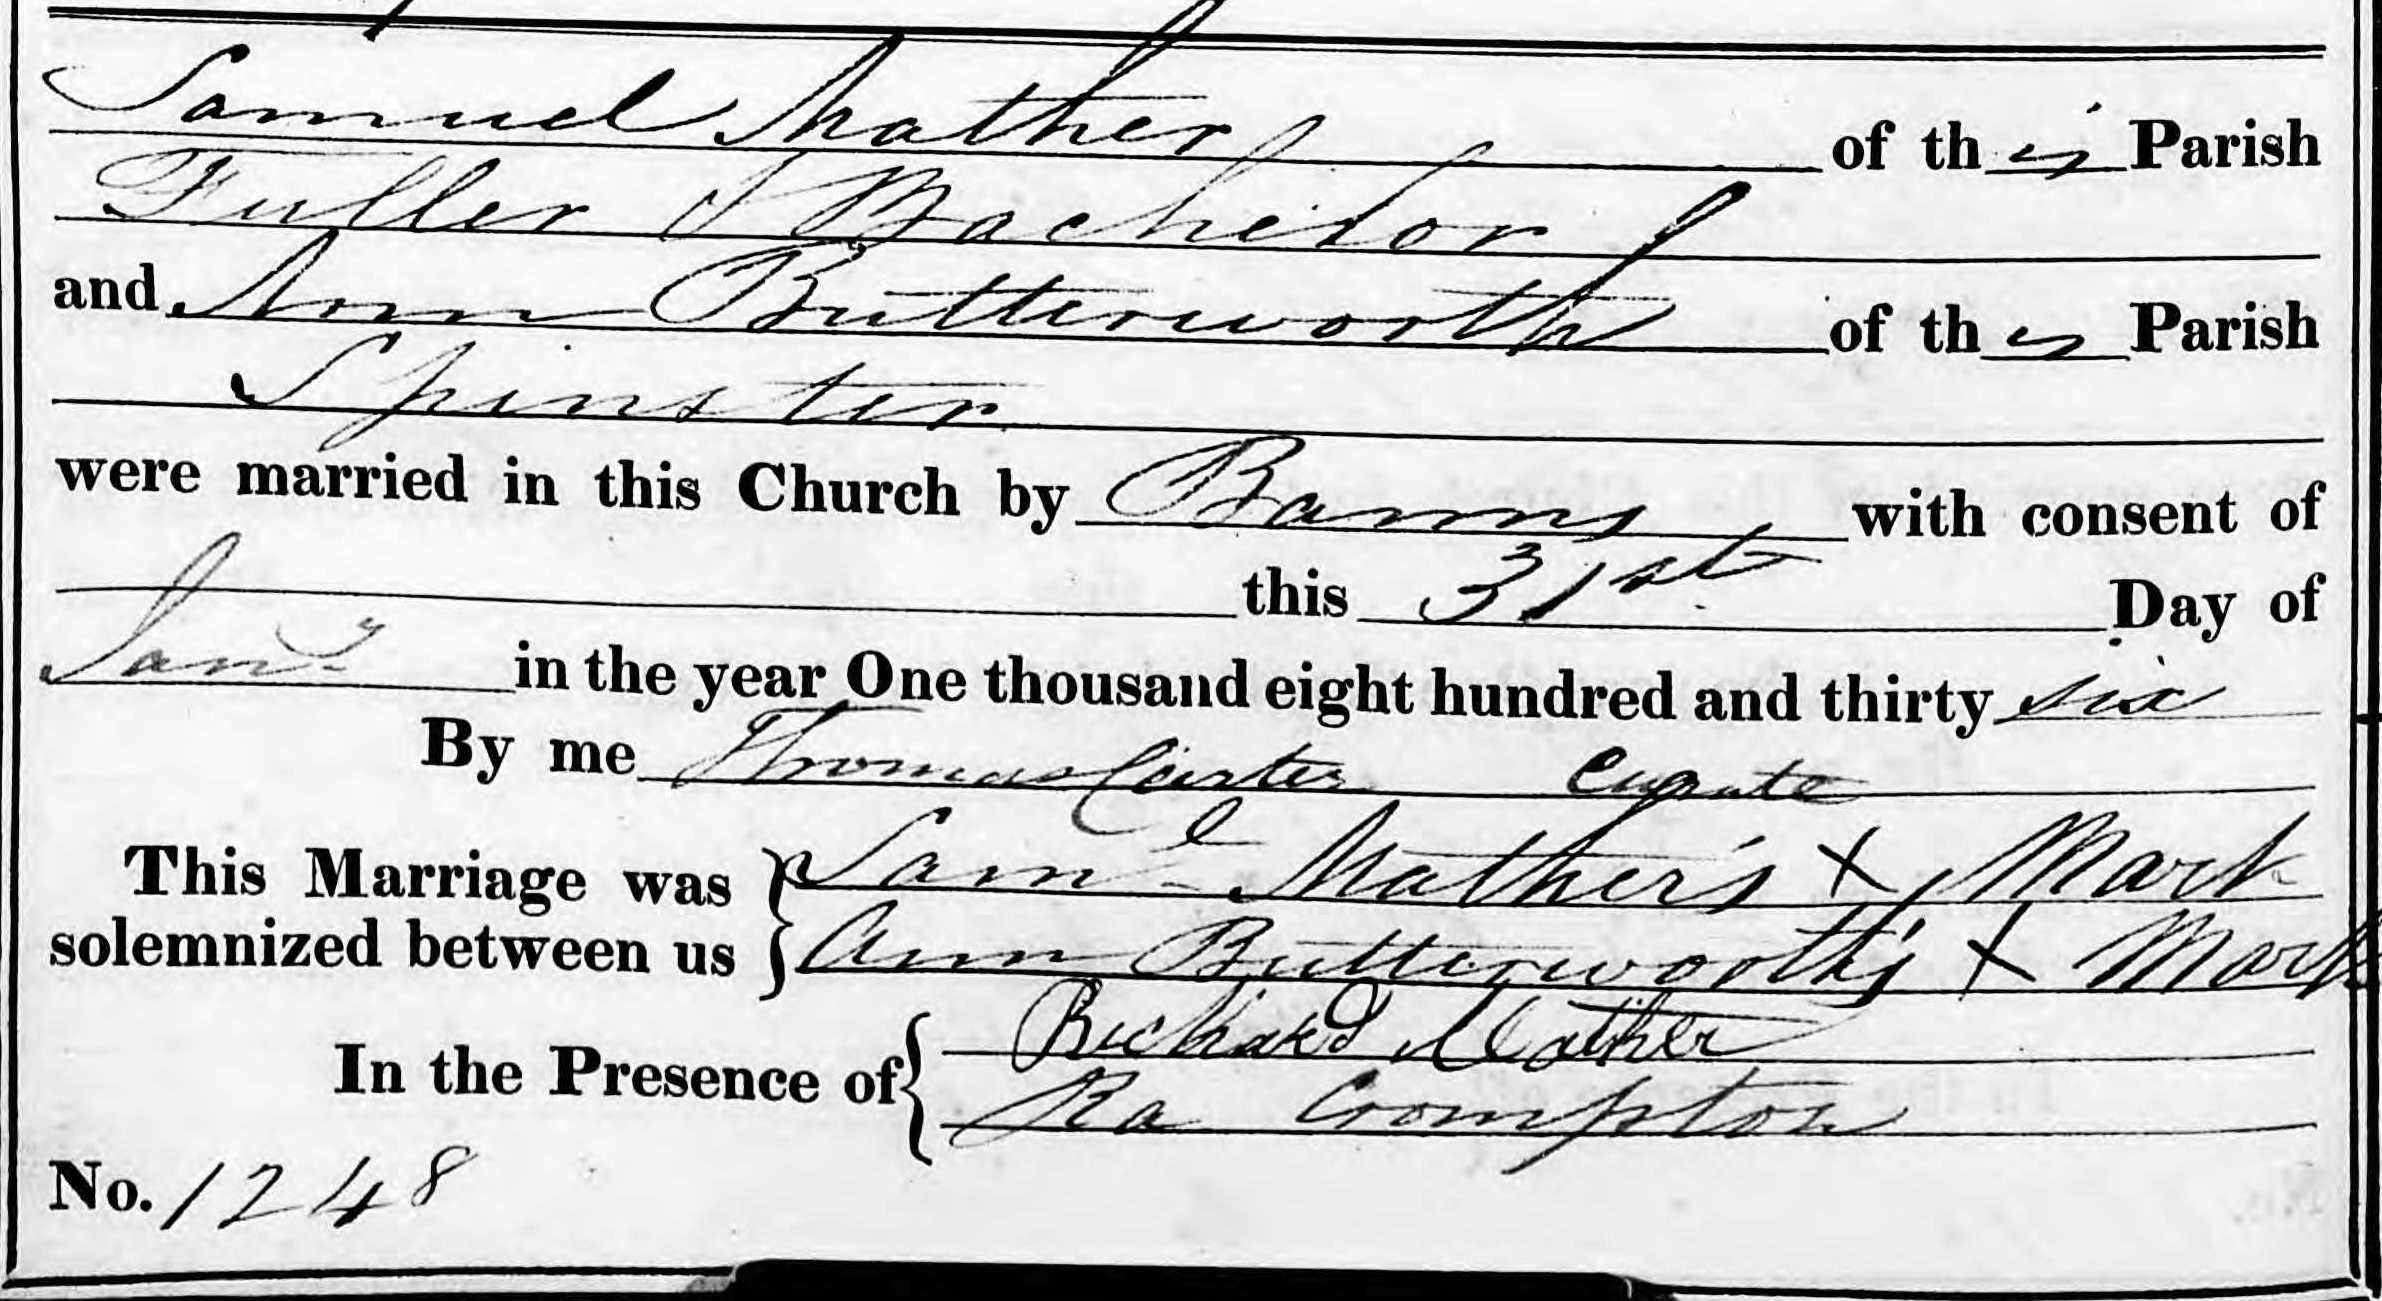 Samuel Mather of this Parish
Fuller & Bachelor
and Ann Butterworth of this Parish
Spinster
were married in this Church by Banns with consent of
this 31st Day of
Jany in the year One thousand eight hundred and thirty six
By me Thomas Carter Curate
This Marriage was solemnized between us
Saml Mather's X Mark
Ann Butterworth's X Mark
In the Presence of
Richard Mather
Ra Crompton
No. 1248